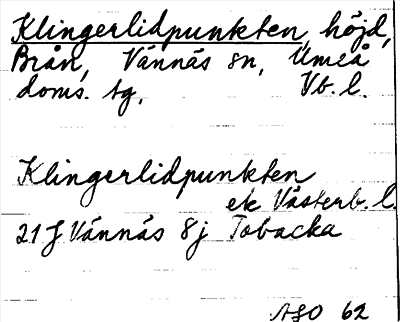 Klingerlidpunkten, höjd,
Brån, Vännäs sn, Umeå
doms. tg, Vb. l.
Klingerlidpunkten
ek Västerb. l.
21 J Vännäs 8j Tobacka
ASO 62